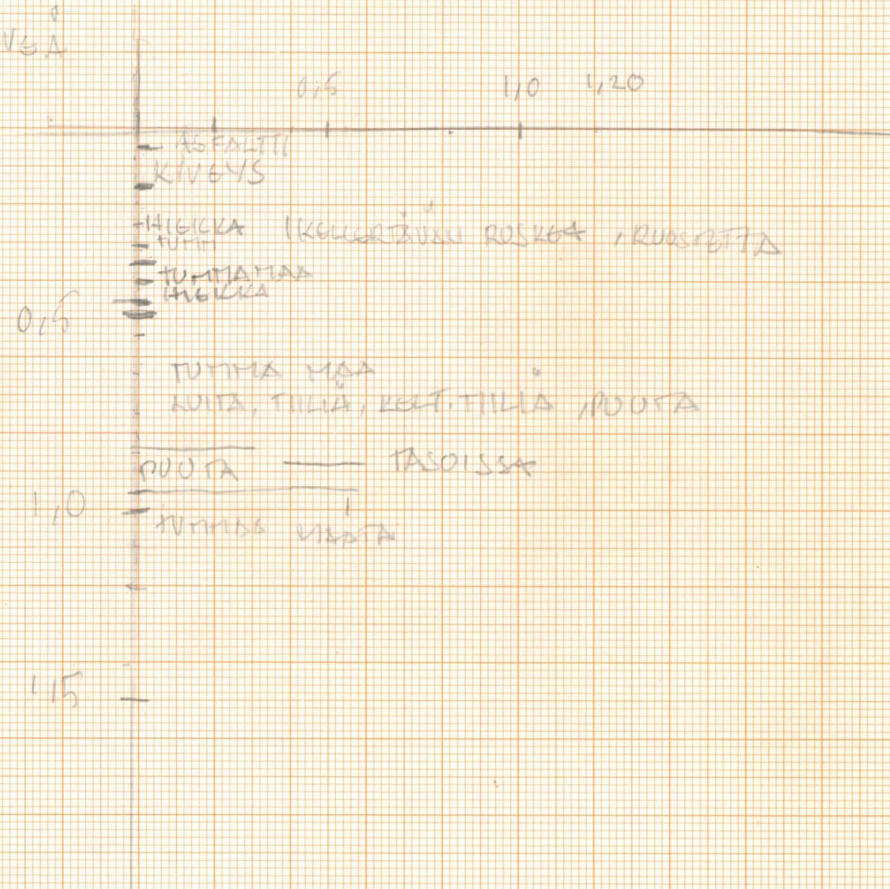 VGÅ
0,5 1,0 1,20
ASFALTTI
KIVEYS
HIEKKA (KELLERTÄVÄN RUSKEA, RUOSTETTA
TUMM
TUMMA MAA
HIEKKA
0,5
TUMMA MAA
LUITA, TIILIÄ, KELT. TIILIÄ, PUUTA
PUUTA — TASOISSA
1,0
TUMMAA MAATA
1,5